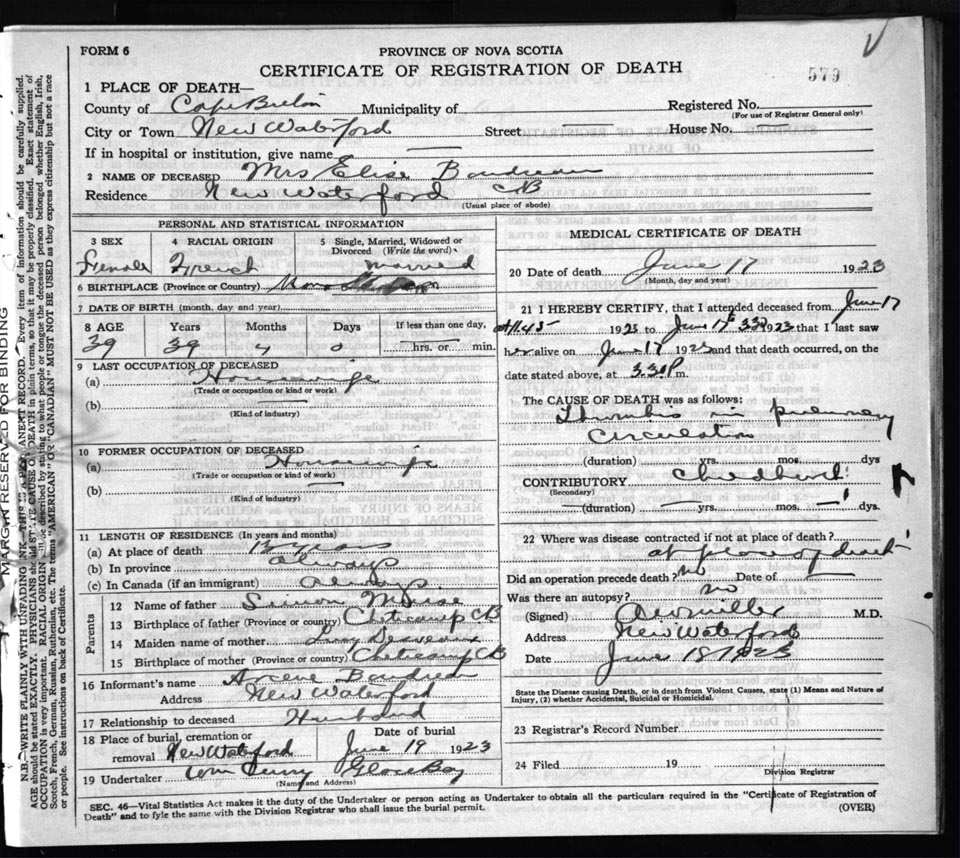 FORM 6
PROVINCE OF NOVA SCOTIA
CERTIFICATE OF REGISTRATION OF DEATH
579
1 PLACE OF DEATH—
County of Cape Breton Municipality of Registered No.
(For use of Registrar General only)
City or Town New Waterford Street House No.
If in hospital or institution, give name
2 NAME OF DECEASED Mrs Elise Boudreau
Residence New Waterford CB
(Usual place of abode)
PERSONAL AND STATISTICAL INFORMATION
3 SEX 4 RACIAL ORIGIN 5 Single, Married, Widowed or Divorced (Write the word)
Female French Married
6 BIRTHPLACE (Province or Country) Nova Scotia
7 DATE OF BIRTH (month, day and year)
8 AGE Years Months Days If less than one day,
39 39 hrs. or min.
9 LAST OCCUPATION OF DECEASED
(a) Housewife
(Trade or occupation or kind or work)
(b)
(Kind of industry)
10 FORMER OCCUPATION OF DECEASED
(a) Housewife
(Trade or occupation or kind of work)
(b)
(Kind of industry)
11 LENGTH OF RESIDENCE (In years and months)
(a) At place of death 12 years
(b) In province always
(c) In Canada (if an immigrant) Always
Parents
12 Name of father Simon
13 Birthplace of father (Province or country) Cheticamp CB
14 Maiden name of mother Lucy Desveaux
15 Birthplace of mother (Province or country) Cheticamp CB
16 Informant's name Arsene Boudreau
Address New Waterford
17 Relationship to deceased Husband
18 Place of burial, cremation or removal New Waterford
Date of burial June 19 1923
19 Undertaker Glace Bay
(Name and Address)
MEDICAL CERTIFICATE OF DEATH
20 Date of death June 17 1923
(Month, day and year)
21 I HEREBY CERTIFY, that I attended deceased from June 17
at 11.45 1923 to June 17 3.30 1923 that I last saw
her alive on June 17 1923 and that death occurred, on the
date stated above, at 3.30 P m.
The CAUSE OF DEATH was as follows:
Thrombis in pulmonary
circulation
(duration) yrs. mos. dys
CONTRIBUTORY Childbirth
(Secondary)
(duration) yrs. mos. dys.
22 Where was disease contracted if not at place of death?
at place of death
Did an operation precede death? No Date of
Was there an autopsy? No
(Signed) Miller M.D.
Address New Waterford
Date June 18 1923
State the Disease causing Death, or in death from Violent Causes, state (1) Means and Nature of
Injury, (2) whether Accidental, Suicidal or Homicidal.
23 Registrar's Record Number
24 Filed 19
Division Registrar
SEC. 46—Vital Statistics Act makes it the duty of the Undertaker or person acting as Undertaker to obtain all the particulars required in the "Certificate of Registration of
Death" and to fyle the same with the Division Registrar who shall issue the burial permit. (OVER)
MARGIN RESERVED FOR BINDING
N.B.—WRITE PLAINLY WITH UNFADING INK—THIS IS A PERMANENT RECORD. Every item of information should be carefully supplied.
AGE should be stated EXACTLY. PHYSICIANS should STATE CAUSE OF DEATH in plain terms, so that it may be properly classified. Exact statement of
OCCUPATION is very important. RACIAL ORIGIN should be described by stating to what people or tongue the deceased person belonged whether English, Irish,
Scotch, French, German, Russian, Ruthenian, etc. The terms "AMERICAN" OR "CANADIAN" MUST NOT BE USED as they express citizenship but not a race
or people. See instructions on back of Certificate.